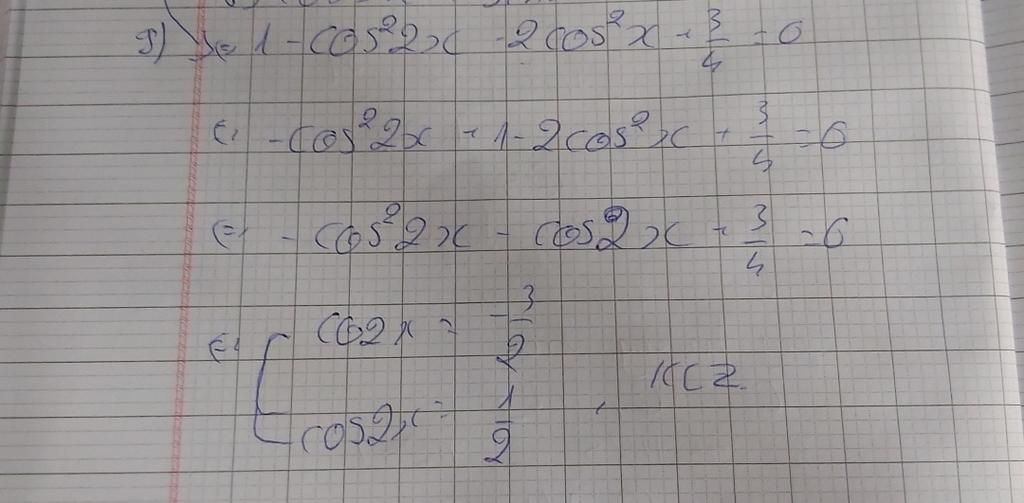 g) <=> 1 - cos²2x - 2cos²x + 3/4 = 0
<=> - cos²2x + 1 - 2cos²x + 3/4 = 0
<=> - cos²2x - cos2x + 3/4 = 0
<=> [ cos2x = -3/2
cos2x = 1/2 , K ∈ Z.